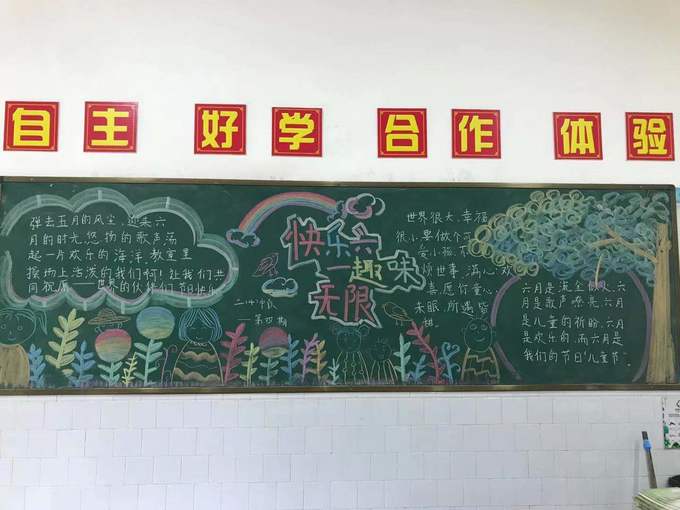 自主 好学 合作 体验
弹去五月的风尘,迎来六
月的时光,悠扬的歌声荡
起一片欢乐的海洋,教室里
操场上活泼的我们呵!让我们共
同祝愿——世界的伙伴们节日快乐
快乐六一
趣味
无限
二(4)中队
—第四期
世界很大,幸福
很小,要做个可
爱小孩,不
烦世事,满心欢
喜,愿你童心
未眠,所遇皆
六月是流金似火,六
月是歌声嘹亮,六月
是儿童的祈盼,六月
是欢乐的,而六月是
我们的节日"儿童节"。